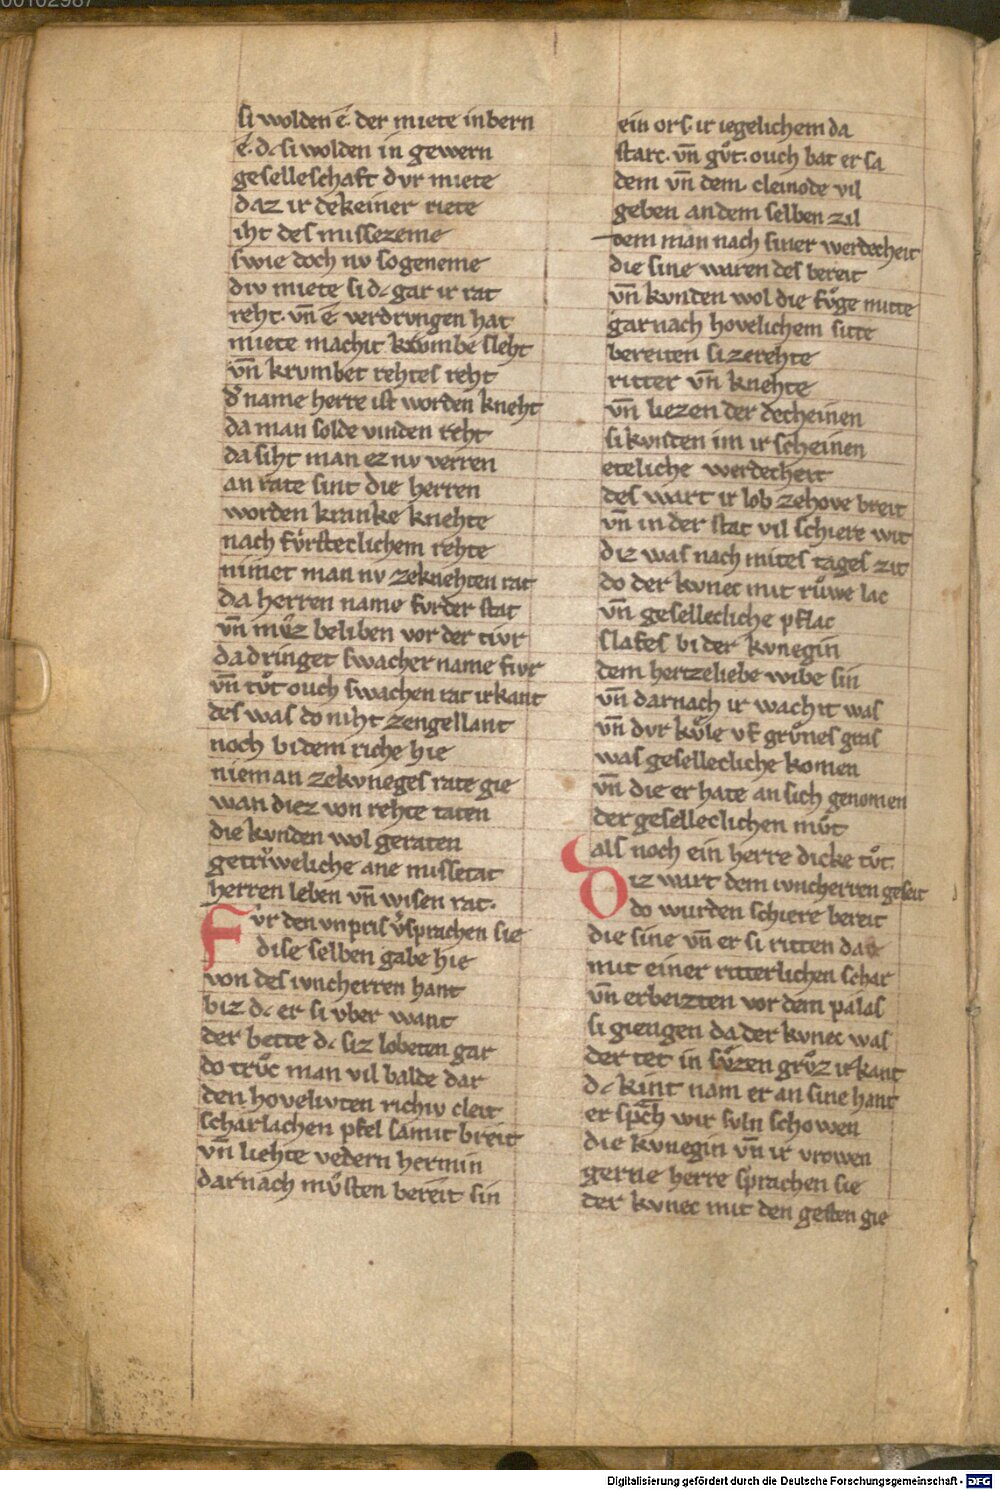 si wolden e. der miete inbern
e. dc si wolden in gewern
geselleschaft dvr miete
daz ir dekeiner riete
iht des missezeme
swie doch nv so geneme
div miete si dc gar ir rat
reht. vn̄ e verdrvngen hat
miete machit krvmbe sleht
vn̄ krvmbet rehtes reht
d͛ name herre ist worden kneht
da man solde vinden reht
da siht man ez nv verren
an rate sint die herren
worden kranke knehte
nach fvrsteclichem rehte
nimet man nv ze knehten rat
da herren name fvrder stat
vn̄ mvͦz beliben vor der tivr
da dringet swacher name fivr
vn̄ tvͦt ouch swachen rat irkant
des was do niht zengellant
noch bi dem riche hie
nieman ze kvneges rate gie
wan diez von rehte taten
die kvnden wol geraten
getrvweliche ane missetat
herren leben vn̄ wisen rat.
Fvr den vnpris v͛sprachen sie
dise selben gabe hie
von des ivncherren hant
biz dc er si vber want
der bette dc siz lobeten gar
do trvͦc man vil balde dar
den hovelivten richiv cleit
scharlachen pfel samit breit
vn̄ liehte vedern hermin
darnach mvͦsten bereit sin
ein ors. ir iegelichem da
starc. vn̄ gvͦt. ouch bat er sa
dem vn̄ dem. cleinode vil
geben an dem selben zil
dem man nach siner werdecheit
die sine waren des bereit
vn̄ kvnden wol die fvͦge mitte
gar nach hovelichem sitte
bereiten si ze rehte
ritter vn̄ knehte
vn̄ liezen der decheinen
si kvnsten im ir scheinen
eteliche werdecheit
des wart ir lob ze hove breit
vn̄ in der stat vil schiere wit
diz was nach mites tages zit
do der kvnec mit rvͦwe lac
vn̄ gesellecliche pflac
slafes bi der kvnegin
dem hertzeliebe wibe sin
vn̄ darnach ir wachit was
vn̄ dvr kvͦle vf grvͦnes gras
was gesellecliche komen
vn̄ die er hate an sich genomen
der geselleclichen mvͦt
als noch ein herre dicke tvͦt.
Diz wart dem ivncherren geseit
do wurden schiere bereit
die sine vn̄ er si ritten dar
mit einer ritterlichen schar
vn̄ erbeizten vor dem palas
si giengen da der kvnec was
der tet in svͦzen grvͦz irkant
dc kint nam er an sine hant
er sp̄ch wir svln schowen
die kvnegin vn̄ ir vrowen
gerne herre sprachen sie
der kvnec mit den gesten gie
Digitalisierung gefördert durch die Deutsche Forschungsgemeinschaft - DFG